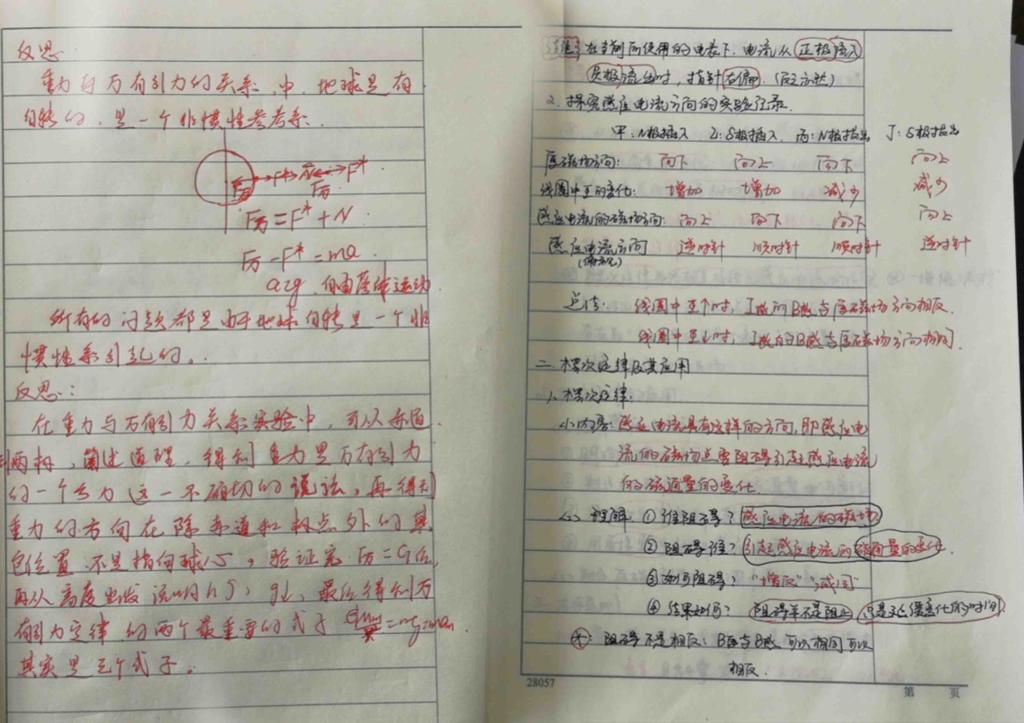 反思:
重力与万有引力的关系中,地球是有
自转的,是一个非惯性参考系.
F万 = F* + N.
F万 - F* = ma
a≠g. 自由落体运动
所有的问题都是由于地球自转是一个非
惯性系引乱的。
反思:
在重力与万有引力关系实验中,可以赤道
到两极,阐述道理,得到重力是万有引力
的一个分力这一不确切的说法,再得到
重力的方向在除赤道和极点外的其
它位置不是指向球心,验证完 F万=G后,
再从高度出发 说明h↑,g↓,最后得到万
有引力定律的两个最重要的式子
其实是三个式子。
在当前所使用的电表下,电流从正极流入
负极流出时,指针右偏.
2.探究感应电流方向的实验记录.
甲:N极插入 乙:S极插入 丙:N极拔出 丁:S极拔出
原磁场方向: 向下 向上 向下 向上
线圈中Φ的变化: 增加 增加 减少 减少
感应电流的磁场方向: 向上 向下 向下 向上
感应电流方向 逆时针 顺时针 顺时针 逆时针
(俯视)
总结: 线圈中Φ↑时,I感的B感与原磁场方向相反.
线圈中Φ↓时,I感的B感与原磁场方向相同.
二.楞次定律及其应用
1.楞次定律:
(1)内容:感应电流具有这样的方向,即感应电
流的磁场总要阻碍引起感应电流
的磁通量的变化.
(2)理解 ①谁阻碍?感应电流的磁场
②阻碍谁?引起感应电流的磁通量的变化.
③如何阻碍:"增反","减同"
④结果如何? 阻碍并不是阻止,只是延缓变化的时间
阻碍不是相反:B原与B感 可以相同可以
相反.
28057
第 页